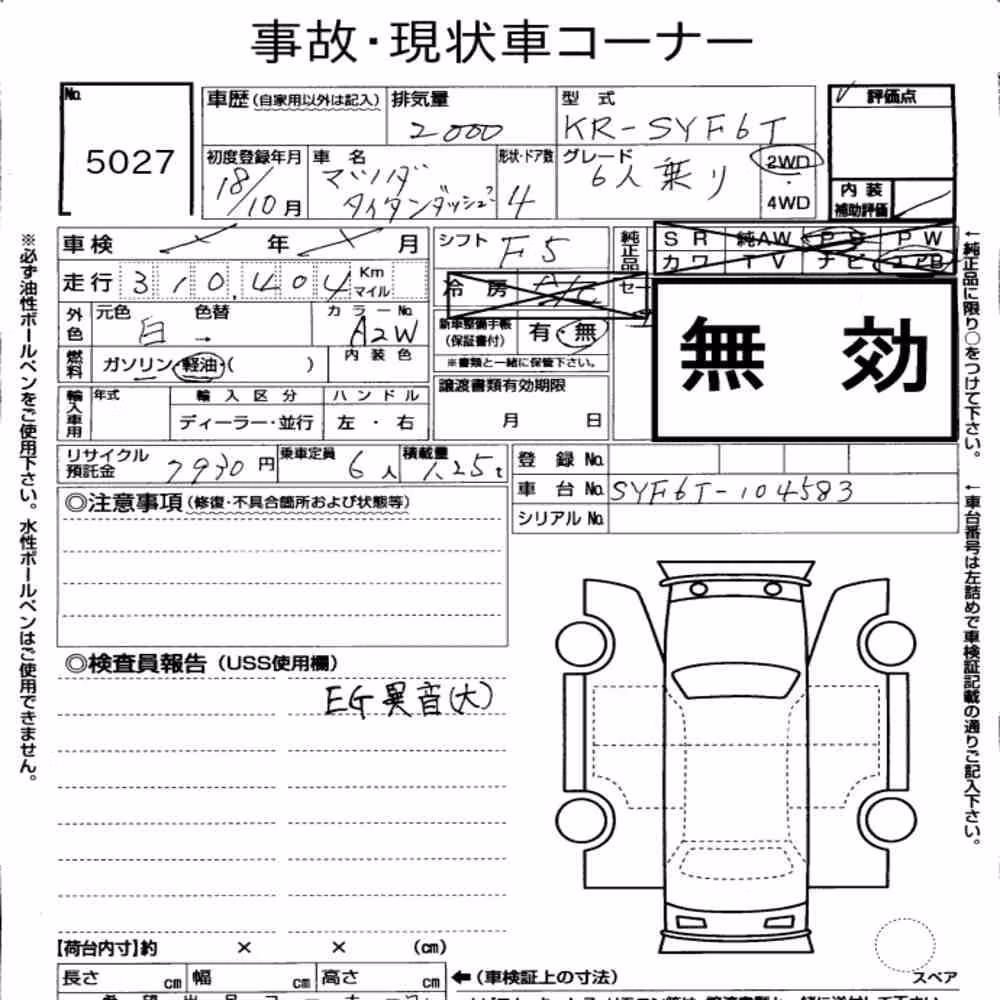 事故・現状車コーナー
No. 5027
車歴(自家用以外は記入) 排気量 2000 型式 KR-SYF6T
初度登録年月 18/10月 車名 マツダ タイタンダッシュ 形状・ドア数 4 グレード 6人乗り 2WD・4WD
評価点
内装補助評価
車検 年 月 シフト F5
純正品 SR 純AW PS PW
カワ TV ナビ エアB
走行 310,404 Km マイル 冷房 A/C
外色 元色 白 色替 → カラーNo. A2W
新車整備手帳(保証書付) 有・無
内装色
※書類と一緒に保管下さい。
燃料 ガソリン・軽油・( )
無効
輸入車用 年式 輸入区分 ハンドル
ディーラー・並行 左・右
譲渡書類有効期限
月 日
リサイクル預託金 7930円 乗車定員 6人 積載量 1.25t
登録No.
車台No. SYF6T-104583
シリアルNo.
◎注意事項(修復・不具合箇所および状態等)
◎検査員報告(USS使用欄)
EG異音(大)
【荷台内寸】約 × × (cm)
長さ cm 幅 cm 高さ cm ←(車検証上の寸法)
スペア
※必ず油性ボールペンをご使用下さい。水性ボールペンはご使用できません。
←純正品に限り○をつけて下さい。
←車台番号は左詰めで車検証記載の通りご記入下さい。